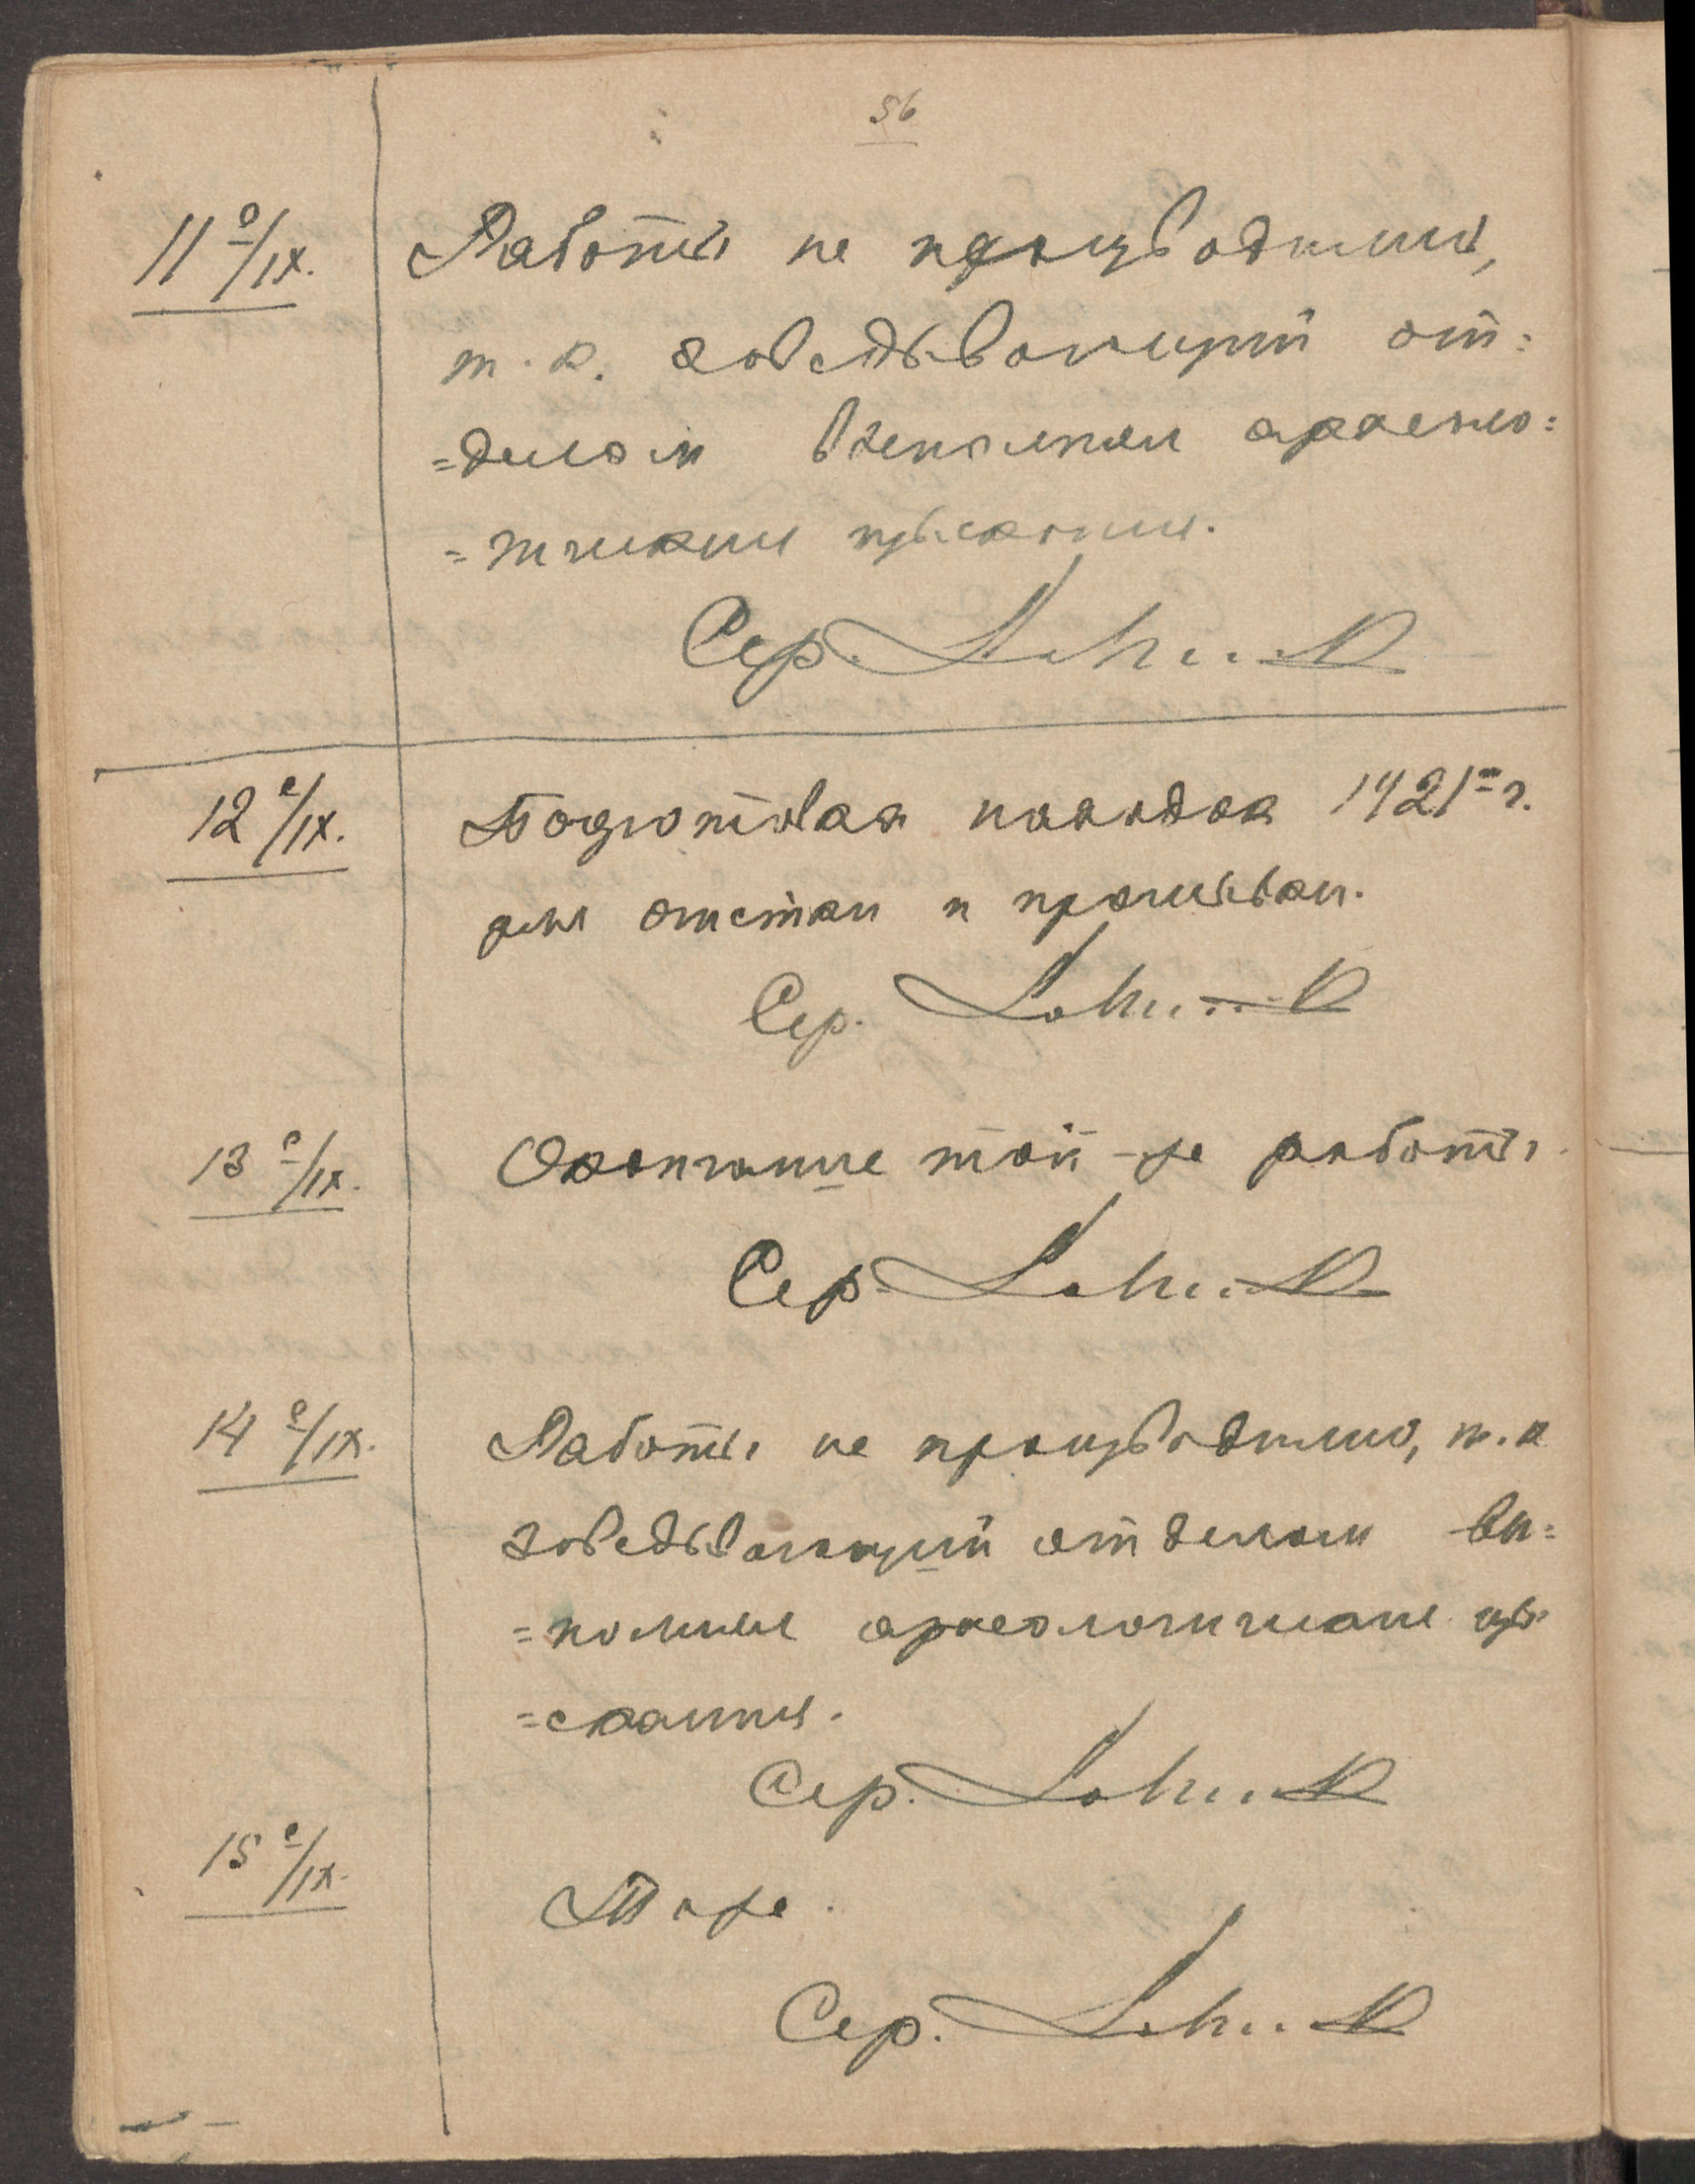 56
11 е/IX. Работы не производились,
т.к. заведывающий от=
=делом выполнял архелло=
=гические изыскания.
Сер.
12 е/IX. Подготовка находок 1921 г.
для очистки и промывки.
Сер.
13 е/IX. Окончание той-же работы.
Сер.
14 е/IX. Работы не производились, т.к
заведывающий отделом вы=
=полнял археологические изы
=скания.
Сер.
15 е/IX. Тоже.
Сер.